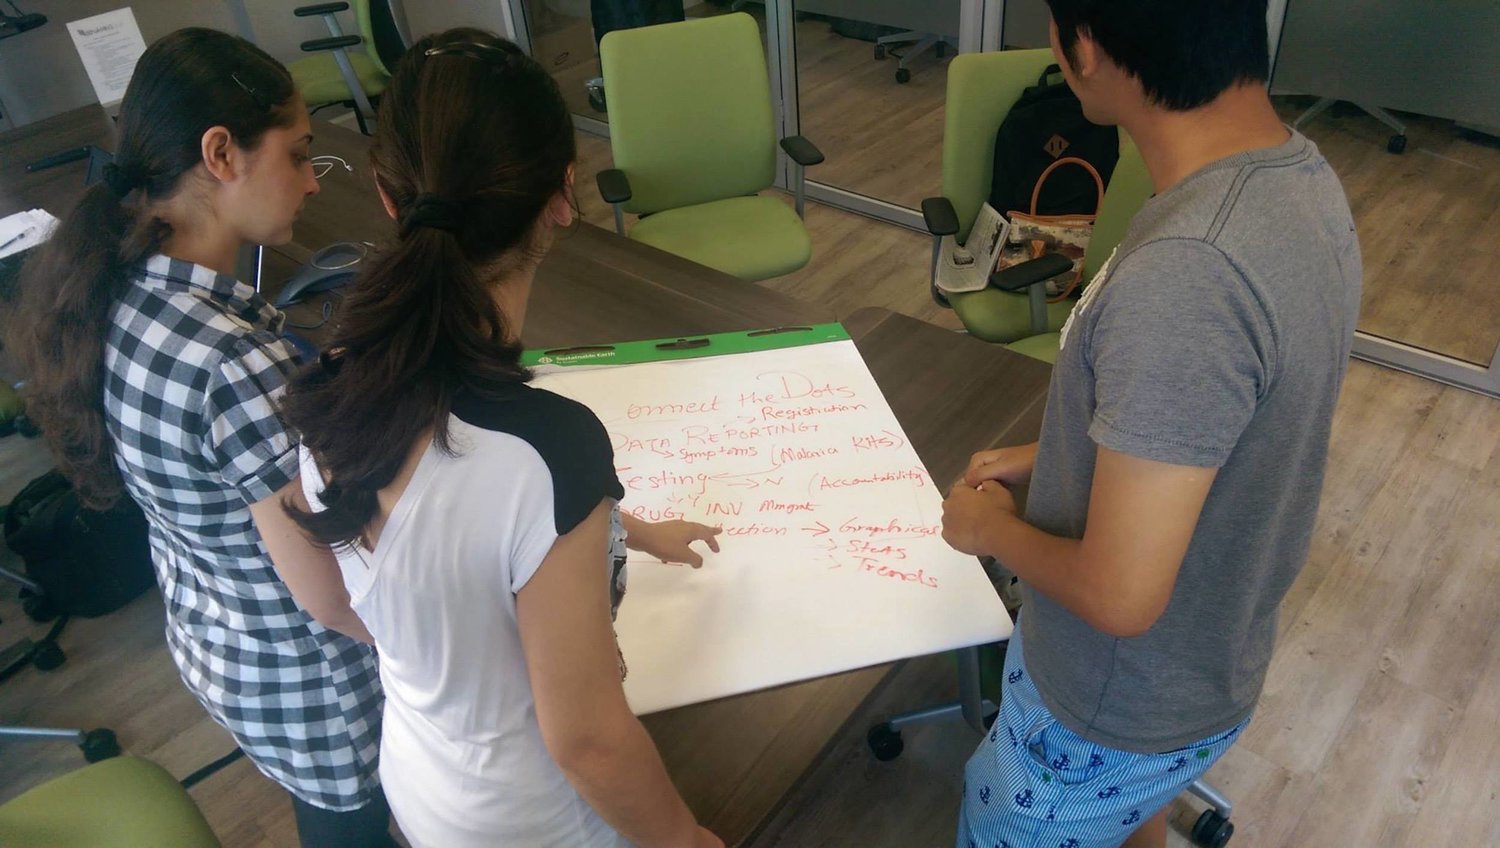 Sustainable Earth
onnect the Dots
→ Registration
DATA REPORTING
→ Symptoms (Malaria Kits)
Testing → N (Accountability)
Y
DRUG INV Mmgmt
ection → Graphical
→ Stats
→ Trends